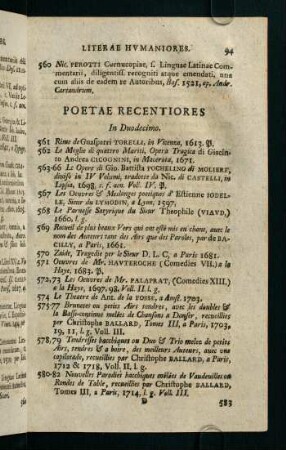 LITERAE HVMANIORES. 94
560 Nic. PEROTTI Cornucopiae, s. Linguae Latinae Com-
mentarii, diligentiss. recogniti atque emendati, una
cum aliis de eadem re Autoribus, Bas. 1521, ap. Andr.
Cartandrum.
POETAE RECENTIORES
In Duodecimo.
561 Rime de Guasparri TORELLI, in Vicenza, 1613. P.
562 La Moglie di quattro Mariti, Opera Tragica di Giacin-
to Andrea CICOGNINI, in Macerata, 1671.
563-66 Le Opere di Gio. Battista POCHELINO di MOLIERE,
divise in IV Volumi, tradotte da Nic. di CASTELLI, in
Lipsia, 1698, c. f. aen. Voll. IV. P.
567 Les Oeuvres & Meslanges poetiques d'Estienne IODEL-
LE, Sieur du LYMODIN, a Lyon, 1597.
568 Le Parnasse Satyrique du Sieur Theophile (VIAUD,)
1660. l. g.
569 Recueil de plus beaux Vers qui ont esté mis en chant, avec le
nom des Auteurs tant des Airs que des Paroles, par de BA-
CILLY, a Paris, 1661.
570 Zaide, Tragedie par le Sieur D. L. C, a Paris, 1681.
571 Oeuvres de Mr. HAUTEROCHE (Comedies VII.) a
la Haye, 1683. P.
572,73 Les Oeuvres de Mr. PALAPRAT, (Comedies XIII.)
a la Haye, 1697, 98. Voll. II. l. g.
574 Le Theatre de Ant. de la FOSSE, a Amst. 1703.
575-77 Brunetes ou petits Airs tendres, avec les doubles &
la Basse-continue mélées de Chansons a Danser, recueillies
par Christophe BALLARD, Tomes III, a Paris, 1703,
19, 11, l. g. Voll. III.
578,79 Tendresses bacchiques ou Duo & Trio meléz de petits
Airs, tendres & a boire, des meilleurs Auteurs, avec une
capilotade, recueillies par Christophe BALLARD, a Paris,
1712 & 1718, Voll. II, l. g.
580-82 Nouvelles Parodies bachiques mélées de Vaudevilles ou
Rondes de Table, recueillies par Christophe BALLARD,
Tomes III, a Paris, 1714, l. g. Voll. III.
583